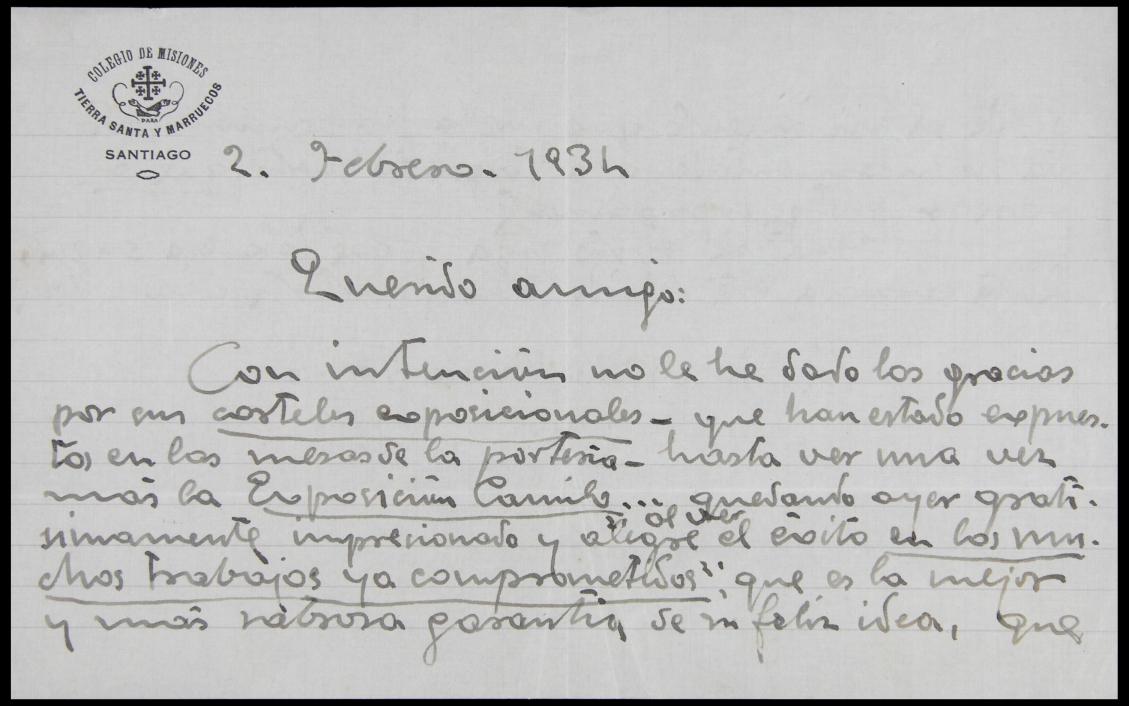 COLEGIO DE MISIONES
PARA
TIERRA SANTA Y MARRUECOS
SANTIAGO
2. Febrero. 1934
Querido amigo:
Con intención no le he dado las gracias
por sus carteles exposicionales - que han estado expues-
tos en las mesas de la portería - hasta ver una vez
más la Exposición Camilo... quedando ayer grati-
simamente impresionado y alegre al ver el éxito "en los mu-
chos trabajos ya comprometidos", que es la mejor
y más sabrosa garantía, de su feliz idea, que